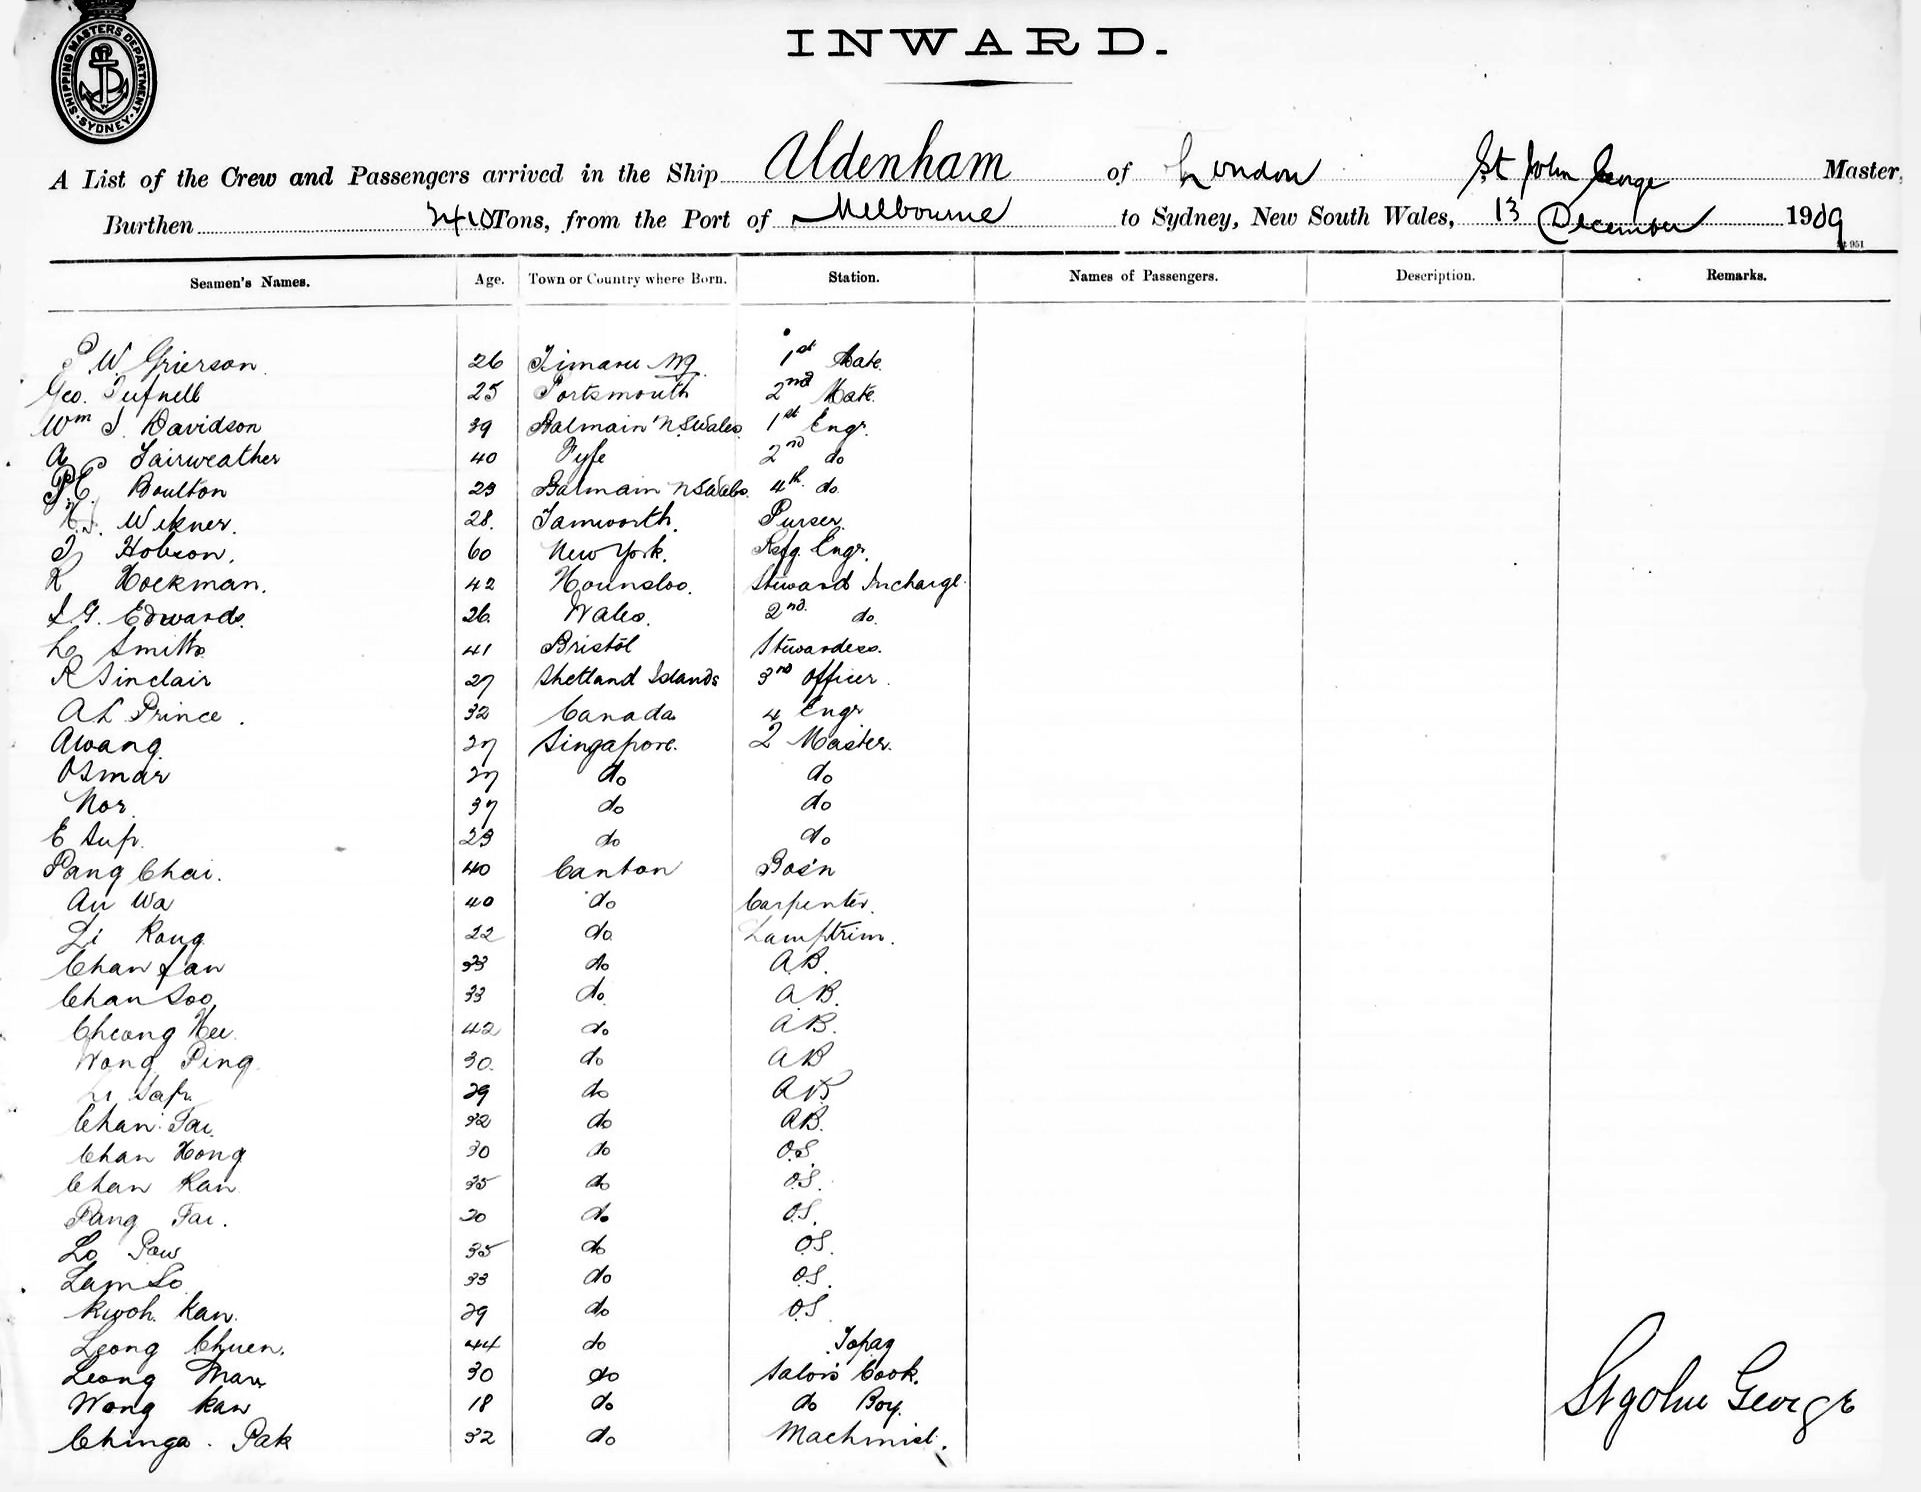 SHIPPING MASTERS DEPARTMENT · SYDNEY ·
INWARD.
A List of the Crew and Passengers arrived in the Ship Aldenham of London St John George Master,
Burthen 2410 Tons, from the Port of Melbourne to Sydney, New South Wales, 13 December 1909
Seamen's Names. Age. Town or Country where Born. Station. Names of Passengers. Description. Remarks.
P W Grierson 26 Timaru NZ. 1st Mate.
Geo. Tufnell 25 Portsmouth 2nd Mate.
Wm J. Davidson 39 Balmain N.S Wales 1st Engr.
A Fairweather 40 Fyfe 2nd do
P.C. Boulton 23 Balmain NSWales. 4th do.
Wekner. 28. Tamworth. Purser.
J Hobson. 60 New York. Refg. Engr.
R Hockman. 42 Hounsloo. Steward Incharge.
S G. Edwards. 26. Wales. 2nd do.
L Smith 41 Bristol Stewardess.
R Sinclair 27 Shetland Islands 3rd Officer.
A L Prince. 32 Canada 4 Engr
Awang 27 Singapore. 2 Master.
Osmar 27 do do
Nor. 37 do do
E Sup. 23 do do
Pang Chai. 40 Canton Bos'n
Au Wa 40 do Carpenter.
Li Kong 22 do. Lamptrim.
Chan Lan 33 do A.B.
Chan Soo 33 do. A.B.
Cheong Hee. 42 do A.B.
Wong Ping 30. do AB
Li Sap. 29 do AB
Chan Tai. 32 do AB.
Chan Hong 30 do O.S.
Chan Kan 35 do O.S.
Pang Tai. 30 do. O.S.
Lo Pow 35 do O.S.
Lam So 33 do O.S.
Kwoh Kan. 29 do O.S.
Leong Chuen. 44 do Topaz
Leong Man 30 do Salon Cook.
Wong Kaw 18 do do Boy.
Chinga. Pak 32 do Machinist.
St John George